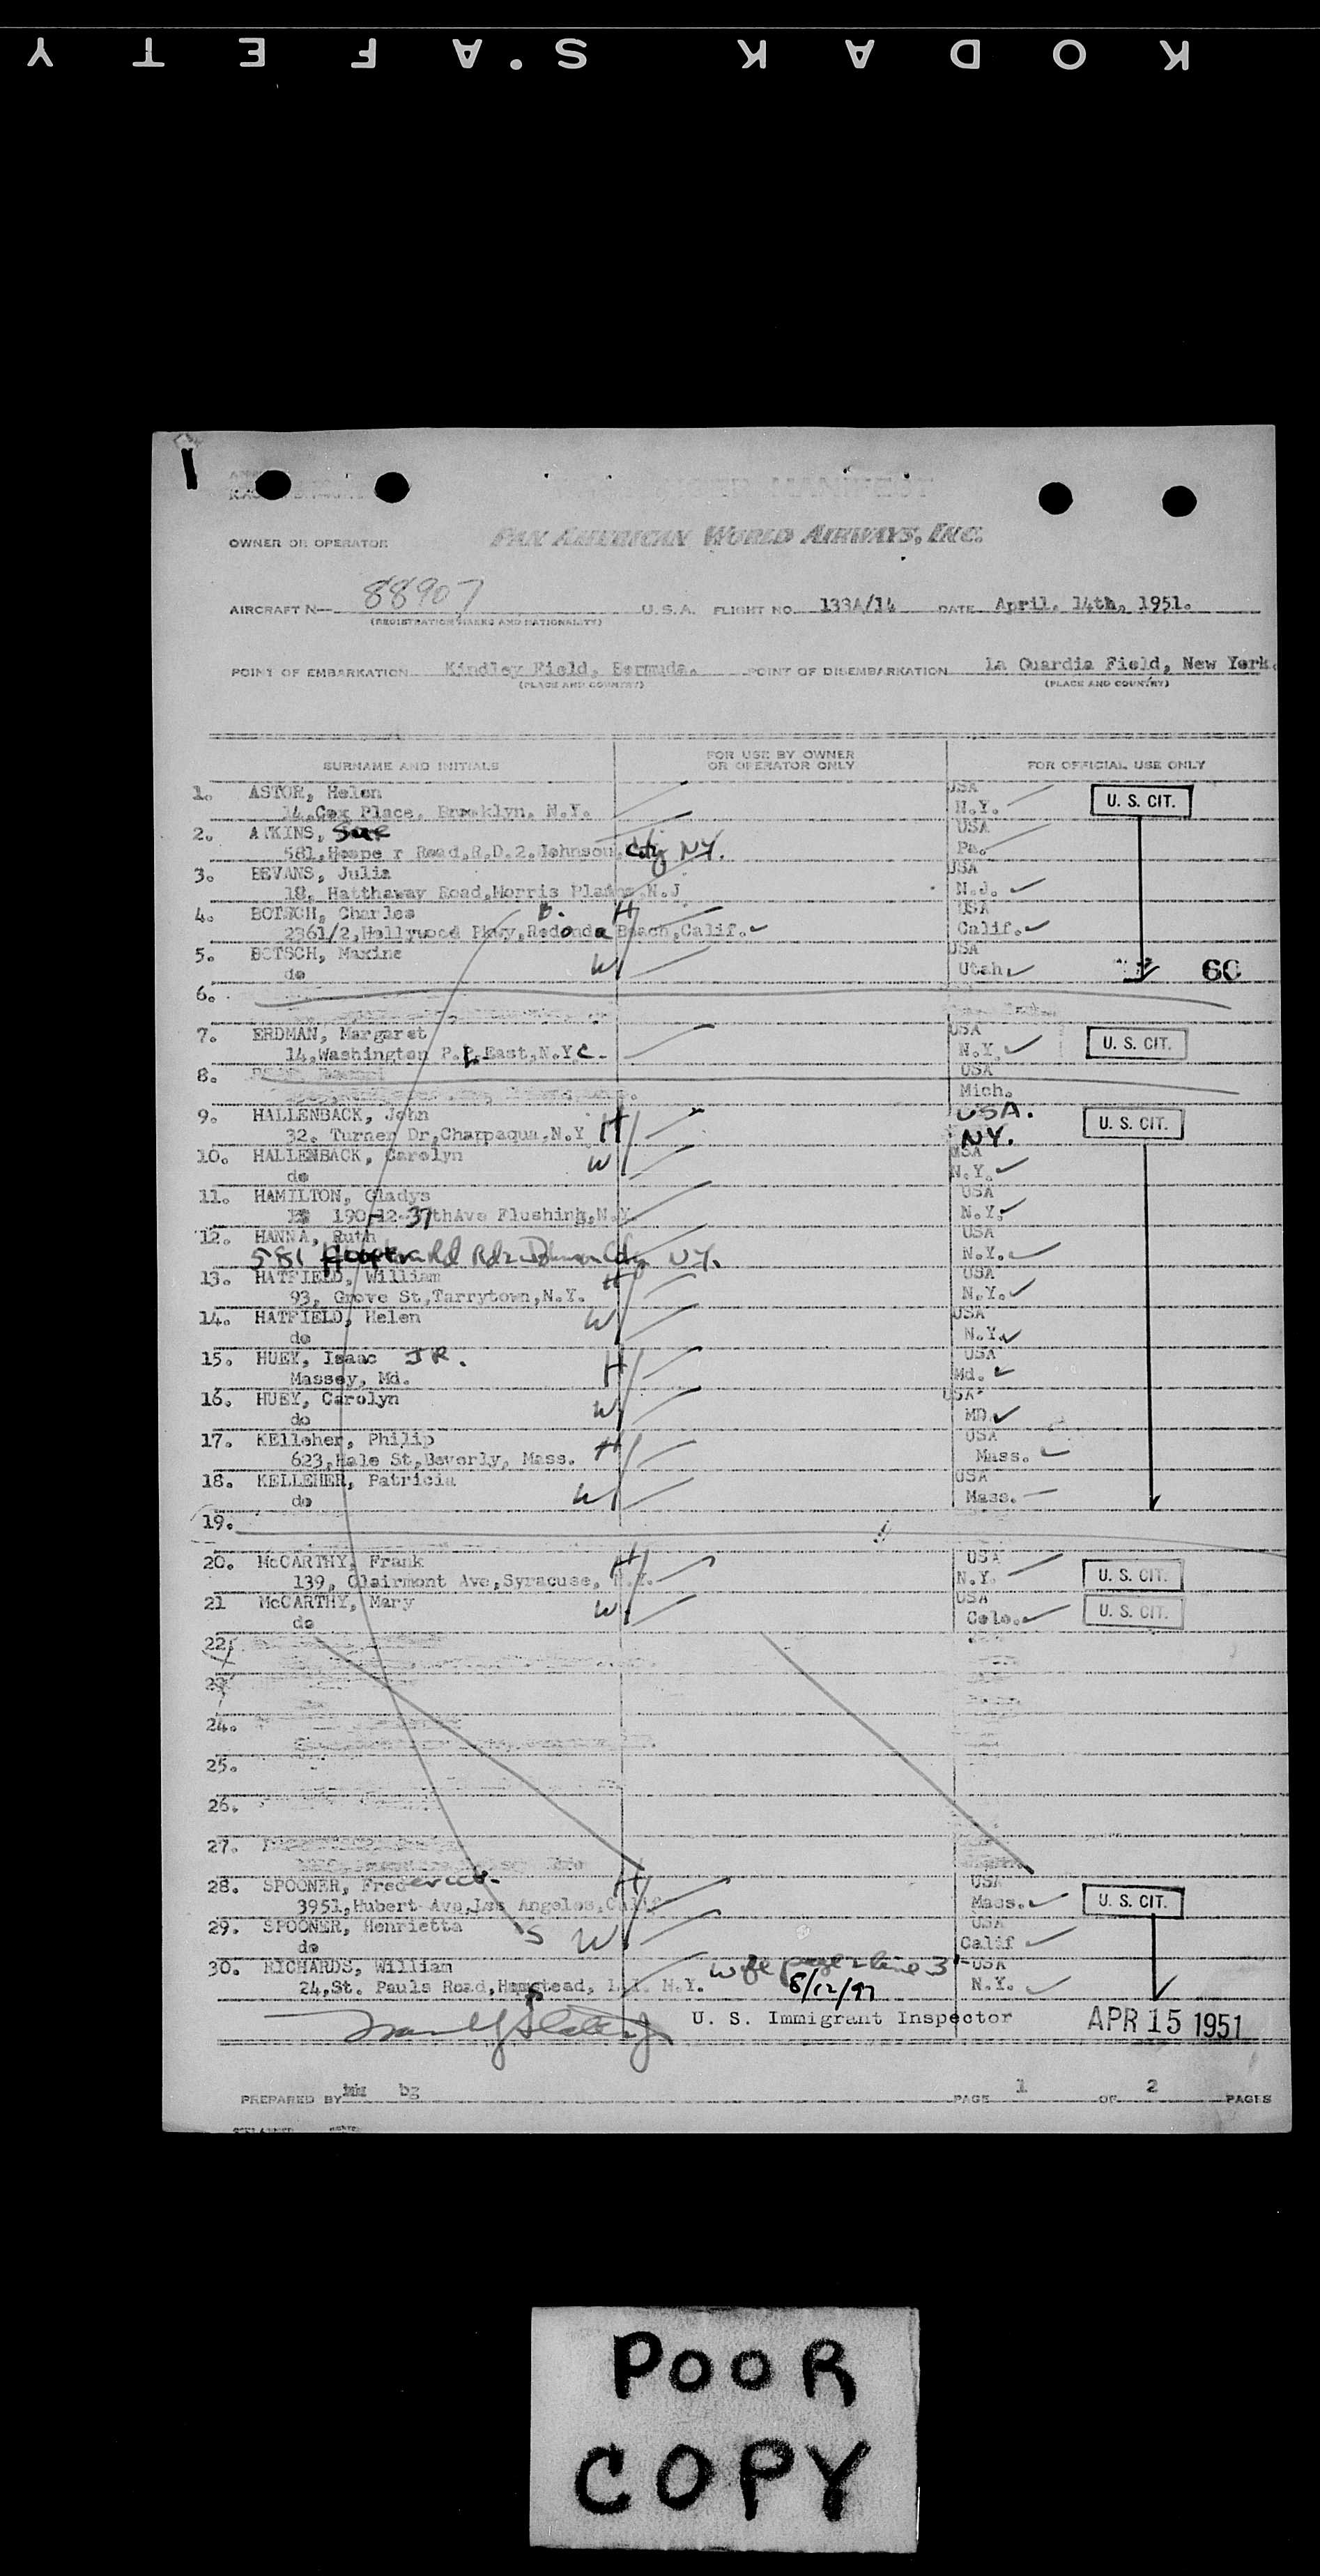 KODAK S.AFETY
1
OWNER OR OPERATOR PAN AMERICAN WORLD AIRWAYS, INC.
AIRCRAFT N— 88907 U.S.A. FLIGHT NO. 133A/14 DATE April. 14th, 1951.
(REGISTRATION MARKS AND NATIONALITY)
POINT OF EMBARKATION Kindley Field, Bermuda. POINT OF DISEMBARKATION La Guardia Field, New York.
(PLACE AND COUNTRY) (PLACE AND COUNTRY)
SURNAME AND INITIALS FOR USE BY OWNER OR OPERATOR ONLY FOR OFFICIAL USE ONLY
1. ASTOR, Helen USA U. S. CIT.
14, Cox Place, Brooklyn, N.Y. N.Y.
2. ATKINS, Sue USA
581, Hooper Road, R.D.2. Johnson City NY. Pa.
3. BEVANS, Julia USA
18, Hatthaway Road, Morris Plains, N.J N.J.
4. BOTSCH, Charles B. H USA
2361/2, Hollywood Pkwy, Redonda Beach, Calif. Calif.
5. BOTSCH, Maxine W USA
do Utah 60
6.
7. ERDMAN, Margaret USA U. S. CIT.
14, Washington P.L. East, N.Y C. N.Y.
8. USA
Mich.
9. HALLENBACK, John H USA. U. S. CIT.
32. Turner Dr, Chappaqua, N.Y NY.
10. HALLENBACK, Carolyn W USA
do N.Y.
11. HAMILTON, Gladys USA
190-12-37thAve Flushing, N.Y. N.Y.
12. HANNA, Ruth USA
581 Rd Rd2 Johnson City NY. N.Y.
13. HATFIELD, William H USA
93, Grove St, Tarrytown, N.Y. N.Y.
14. HATFIELD, Helen W USA
do N.Y.
15. HUEY, Isaac JR. H USA
Massey, Md. Md.
16. HUEY, Carolyn W USA
do MD
17. KElleher, Philip H USA
623, Hale St, Beverly, Mass. Mass.
18. KELLEHER, Patricia W USA
do Mass.
19.
20. McCARTHY, Frank H USA U. S. CIT.
139, Clairmont Ave, Syracuse, N.Y. N.Y.
21 McCARTHY, Mary W USA U. S. CIT.
do Colo.
22.
23.
24.
25.
26.
27.
28. SPOONER, Frederick. H USA U. S. CIT.
3951, Hubert Ave, Los Angeles, Calif Mass.
29. SPOONER, Henrietta S W USA
do Calif
30. RICHARDS, William wife page 2 line 3 USA
24, St. Pauls Road, Hempstead, L.I. N.Y. 8/12/97 N.Y.
U. S. Immigrant Inspector APR 15 1951
PREPARED BY bg PAGE 1 OF 2 PAGES
POOR
COPY